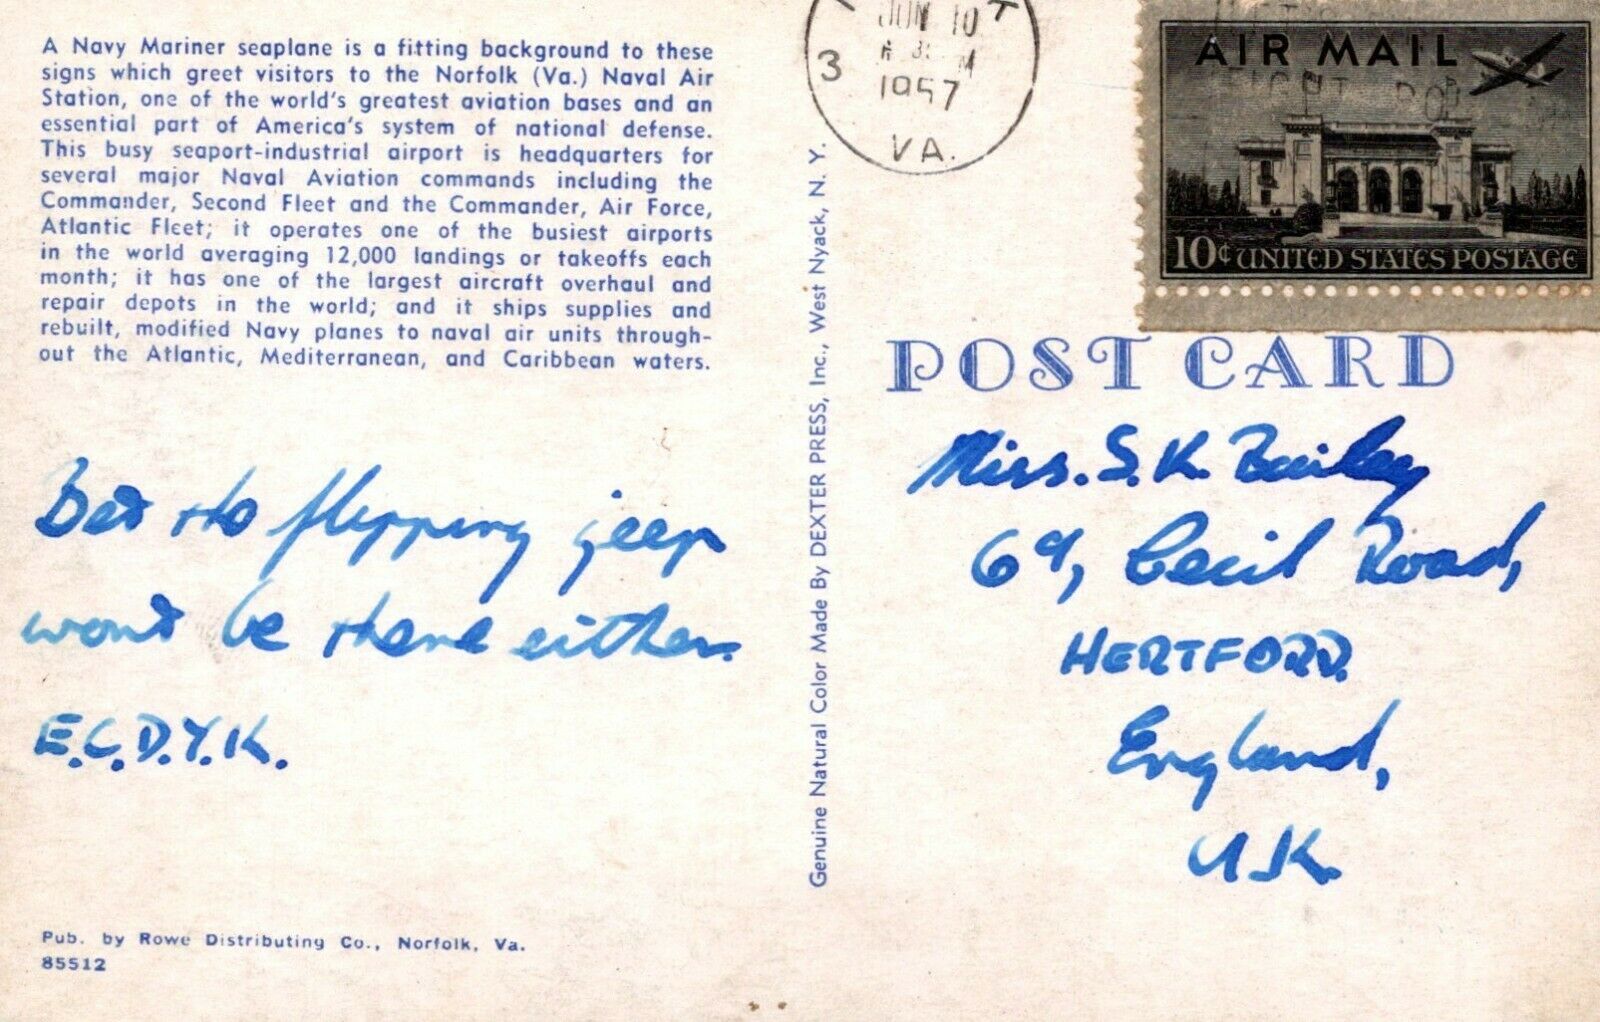 A Navy Mariner seaplane is a fitting background to these
signs which greet visitors to the Norfolk (Va.) Naval Air
Station, one of the world's greatest aviation bases and an
essential part of America's system of national defense.
This busy seaport-industrial airport is headquarters for
several major Naval Aviation commands including the
Commander, Second Fleet and the Commander, Air Force,
Atlantic Fleet; it operates one of the busiest airports
in the world averaging 12,000 landings or takeoffs each
month; it has one of the largest aircraft overhaul and
repair depots in the world; and it ships supplies and
rebuilt, modified Navy planes to naval air units through-
out the Atlantic, Mediterranean, and Caribbean waters.
Bet the flipping jeep
won't be there either.
E.C.D.Y.K.
Pub. by Rowe Distributing Co., Norfolk, Va.
85512
Genuine Natural Color Made By DEXTER PRESS, Inc., West Nyack, N. Y.
JUN 10
3
1957
VA.
AIR MAIL
10¢ UNITED STATES POSTAGE
POST CARD
Miss. S. K. Bailey
69, Cecil Road,
HERTFORD.
England,
U.K.